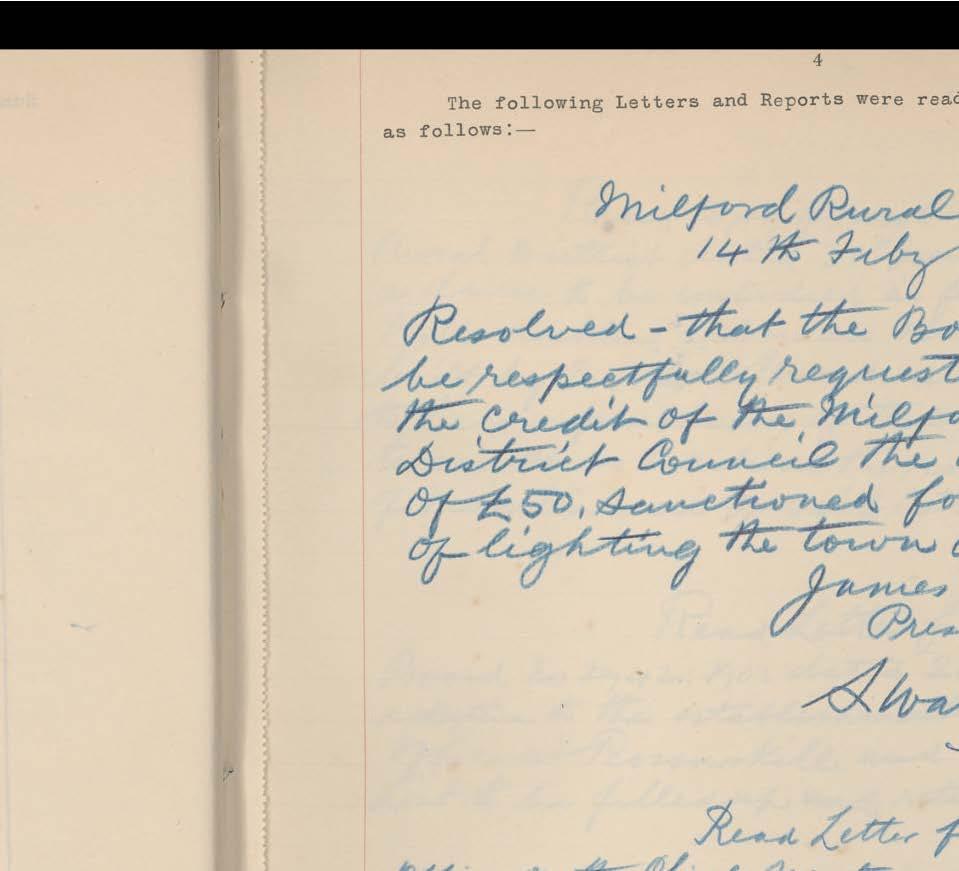 4
The following Letters and Reports were read
as follows:—
Milford Rural
14th Feby
Resolved - that the Bo
be respectfully request
the credit of the Milfo
District Council the
of £50, sanctioned fo
of lighting the town
James
Pres
S Wa
Read Letter f